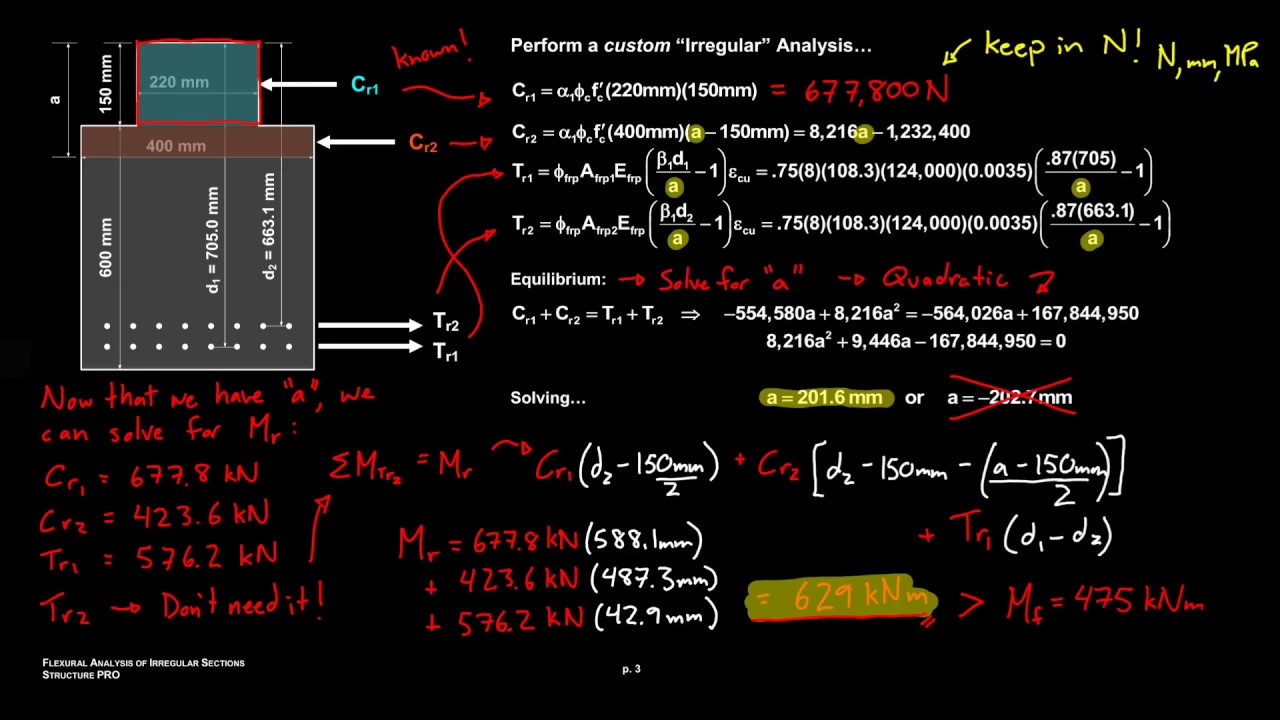 Perform a custom “Irregular” Analysis…
keep in N! N, mm, MPa
known!
a
150 mm
220 mm
Cr1
400 mm
Cr2
600 mm
d₁ = 705.0 mm
d₂ = 663.1 mm
Tr2
Tr1
Cr1 = α₁ϕc f′c(220mm)(150mm) = 677,800 N
Cr2 = α₁ϕc f′c(400mm)(a – 150mm) = 8,216a – 1,232,400
Tr1 = ϕfrp Afrp1 Efrp (β₁d₁/a – 1) εcu = .75(8)(108.3)(124,000)(0.0035)(.87(705)/a – 1)
Tr2 = ϕfrp Afrp2 Efrp (β₁d₂/a – 1) εcu = .75(8)(108.3)(124,000)(0.0035)(.87(663.1)/a – 1)
Equilibrium: → Solve for "a" → Quadratic
Cr1 + Cr2 = Tr1 + Tr2 ⇒ –554,580a + 8,216a² = –564,026a + 167,844,950
8,216a² + 9,446a – 167,844,950 = 0
Solving… a = 201.6 mm or a = –202.7mm
Now that we have "a", we
can solve for Mr:
Cr1 = 677.8 kN
Cr2 = 423.6 kN
Tr1 = 576.2 kN
Tr2 → Don't need it!
ΣMTr2 = Mr → Cr1 (d₂ – 150mm/2) + Cr2 [d₂ – 150mm – (a – 150mm)/2]
+ Tr1 (d₁ – d₂)
Mr = 677.8 kN (588.1mm)
+ 423.6 kN (487.3mm)
+ 576.2 kN (42.9mm)
= 629 kNm > Mf = 475 kNm
FLEXURAL ANALYSIS OF IRREGULAR SECTIONS
STRUCTURE PRO
p. 3